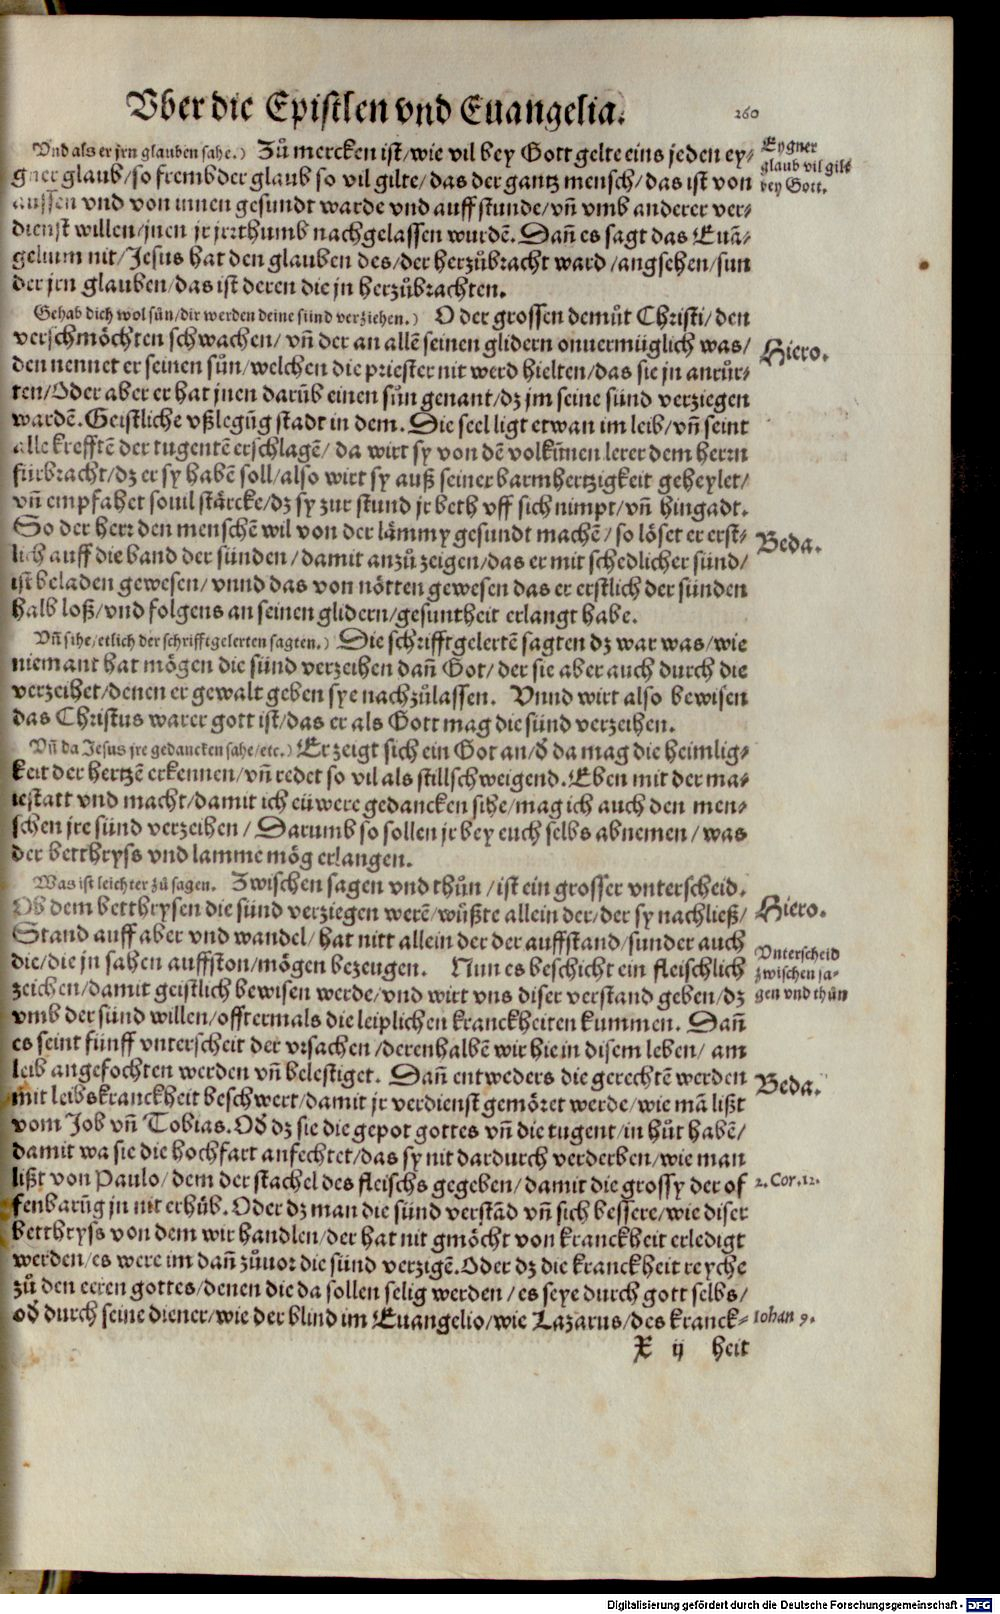 Vber die Epistlen vnd Euangelia. 260
Vnd als er jrn glauben sahe.) Zů mercken ist/wie vil bey Gott gelte eins jeden ey⸗
gner glaub/so frembder glaub so vil gilte/das der gantz mensch/das ist von
aussen vnd von innen gesundt warde vnd auff stunde/vñ vmb anderer ver⸗
dienst willen/jnen jr jrrthumb nachgelassen wurdẽ. Dañ es sagt das Euã⸗
gelium nit/Jesus hat den glauben des/der herzůbracht ward/angsehen/sun
der jrn glauben/das ist deren die jn herzůbrachten.
Eygner
glaub vil gilt
bey Gott.
Gehab dich wol sůn/dir werden deine sünd verziehen.) O der grossen demůt Christi/den
verschmöchten schwachen/vñ der an allẽ seinen glidern onuermüglich was/
den nennet er seinen sůn/welchen die priester nit werd hielten/das sie jn anrür⸗
ten/Oder aber er hat jnen darũb einen sůn genant/dz jm seine sünd verziegen
wardẽ. Geistliche vßlegũg stadt in dem. Die seel ligt etwan im leib/vñ seint
alle krefftẽ der tugentẽ erschlagẽ/da wirt sy von dẽ volkũmen lerer dem herrn
fürbracht/dz er sy habẽ soll/also wirt sy auß seiner barmhertzigkeit geheylet/
vñ empfahet souil stärcke/dz sy zur stund jr beth vff sich nimpt/vñ hingadt.
So der herr den menschẽ wil von der lämmy gesundt machẽ/so löset er erst⸗
lich auff die band der sünden/damit anzů zeigen/das er mit schedlicher sünd/
ist beladen gewesen/vnnd das von nötten gewesen das er erstlich der sünden
halb loß/vnd folgens an seinen glidern/gesuntheit erlangt habe.
Hiero.
Beda.
Vñ sihe/etlich der schrifftgelerten sagten.) Die schrifftgelertẽ sagten dz war was/wie
niemant hat mögen die sünd verzeihen dañ Got/der sie aber auch durch die
verzeihet/denen er gewalt geben sye nachzůlassen. Vnnd wirt also bewisen
das Christus warer gott ist/das er als Gott mag die sünd verzeihen.
Vñ da Jesus jre gedancken sahe/etc.) Er zeigt sich ein Got an/ð da mag die heimlig⸗
keit der hertzẽ erkennen/vñ redet so vil als stillschweigend. Eben mit der ma⸗
iestatt vnd macht/damit ich eüwere gedancken sihe/mag ich auch den men⸗
schen jre sünd verzeihen/Darumb so sollen jr bey euch selbs abnemen/was
der betthryss vnd lamme mög erlangen.
Was ist leichter zů sagen. Zwischen sagen vnd thůn/ist ein grosser vnterscheid.
Ob dem betthrysen die sünd verziegen werẽ/wüßte allein der/der sy nachließ/
Stand auff aber vnd wandel/hat nitt allein der der auffstand/sunder auch
die/die jn sahen auffston/mögen bezeugen. Nun es beschicht ein fleischlich
zeichen/damit geistlich bewisen werde/vnd wirt vns diser verstand geben/dz
vmb der sünd willen/offtermals die leiplichen kranckheiten kummen. Dañ
es seint fünff vnterscheit der vrsachen/derenhalbẽ wir hie in disem leben/am
leib angefochten werden vñ belestiget. Dañ entweders die gerechtẽ werden
mit leibskranckheit beschwert/damit jr verdienst gemöret werde/wie mã lißt
vom Job vñ Tobias. Oð dz sie die gepot gottes vñ die tugent/in hůt habẽ/
damit wa sie die hochfart anfechtet/das sy nit dardurch verderben/wie man
lißt von Paulo/dem der stachel des fleischs gegeben/damit die grossy der of
fenbarũg jn nit erhüb. Oder dz man die sünd verstãd vñ sich bessere/wie diser
betthryss von dem wir handlen/der hat nit gmöcht von kranckheit erledigt
werden/es were im dañ zůuor die sünd verzigẽ. Oder dz die kranckheit reyche
zů den eeren gottes/denen die da sollen selig werden/es seye durch gott selbs/
oð durch seine diener/wie der blind im Euangelio/wie Lazarus/des kranck⸗
Hiero.
Vnterscheid
zwischen sa⸗
gen vnd thůn
Beda.
2. Cor. 12.
Iohan 9.
X ij heit
Digitalisierung gefördert durch die Deutsche Forschungsgemeinschaft - DFG